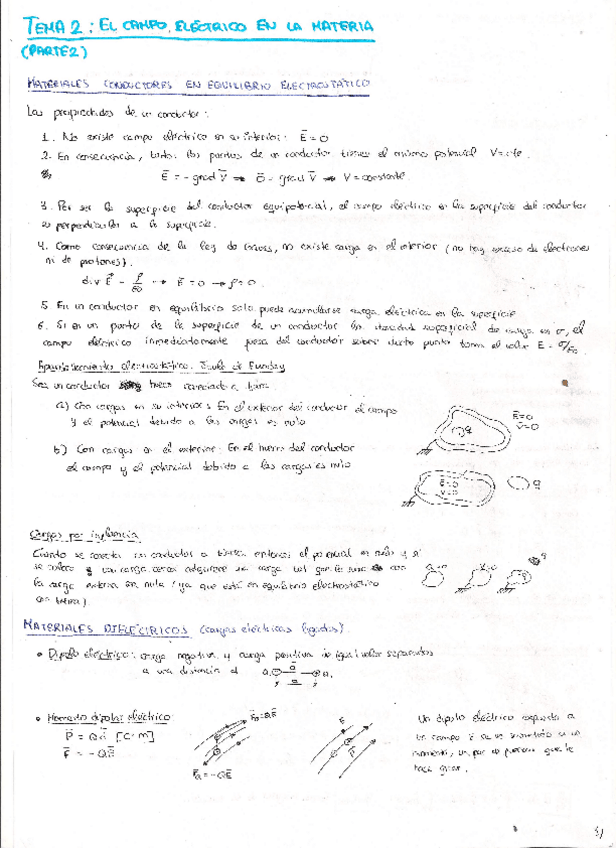 TEMA 2: EL CAMPO ELÉCTRICO EN LA MATERIA
(PARTE 2)
MATERIALES CONDUCTORES EN EQUILIBRIO ELECTROSTÁTICO
Las propiedades de un conductor:
1. No existe campo eléctrico en su interior: E = 0
2. En consecuencia, todos los puntos de un conductor tienen el mismo potencial V = cte.
E = - grad V → 0 - grad V → V = constante
3. Por ser la superficie del conductor equipotencial, el campo eléctrico en la superficie del conductor
es perpendicular a la superficie.
4. Como consecuencia de la ley de Gauss, no existe carga en el interior (no hay exceso de electrones
ni de protones).
div E = ρ/ε0 → E = 0 → ρ = 0
5. En un conductor en equilibrio solo puede acumularse carga eléctrica en la superficie
6. Si en un punto de la superficie de un conductor la densidad superficial de carga es σ, el
campo eléctrico inmediatamente fuera del conductor sobre dicho punto toma el valor E = σ/ε0
electrostático. Jaula de Faraday
Sea un conductor hueco conectado a tierra
a) Con cargas en su interior: En el exterior del conductor el campo
y el potencial debido a las cargas es nulo
E=0
V=0
q
b) Con cargas en el exterior: En el hueco del conductor
el campo y el potencial debido a las cargas es nulo
E=0
V=0
q
Cargas por influencia
Cuando se conecta un conductor a tierra entonces el potencial es nulo y si
se coloca una carga cerca adquiere una carga tal que la suma con
la carga externa sea nula (ya que está en equilibrio electrostático
con tierra).
MATERIALES DIELÉCTRICOS (cargas eléctricas ligadas)
• Dipolo eléctrico: carga negativa y carga positiva de igual valor separados
a una distancia d
• Momento dipolar eléctrico
P = Qd [C·m]
F = -QE
F = QE
F = -QE
E
P
Un dipolo eléctrico expuesto a
un campo E se ve sometido a un
momento, un par de fuerzas que le
hace girar.